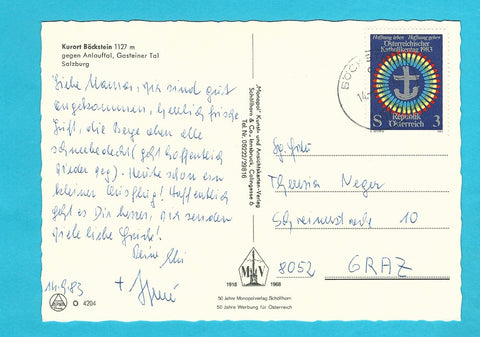 Kurort Böckstein 1127 m
gegen Anlauftal, Gasteiner Tal
Salzburg
Liebe Mama, wir sind gut
angekommen, herrlich frische
Luft, die Berge oben alle
schneebedeckt (geht hoffentlich
wieder weg). Heute schon ein
kleiner Ausflug! Hoffentlich
geht es Dir besser, wir senden
viele liebe Grüße!
Deine
14.9.83
O 4204
"Monopol" Kunst- und Ansichtskarten-Verlag
Schöllhorn & Co., Innsbruck, Colingasse 6
Tel. Nr. 05222/29816
M V
1918 1968
50 Jahre Monopolverlag Schöllhorn
50 Jahre Werbung für Österreich
BÖCKSTEIN
14.
Hoffnung leben Hoffnung geben
Österreichischer
Katholikentag 1983
Republik
Österreich
S 3
Sg. Frau
Theresia Neger
10
8052 GRAZ